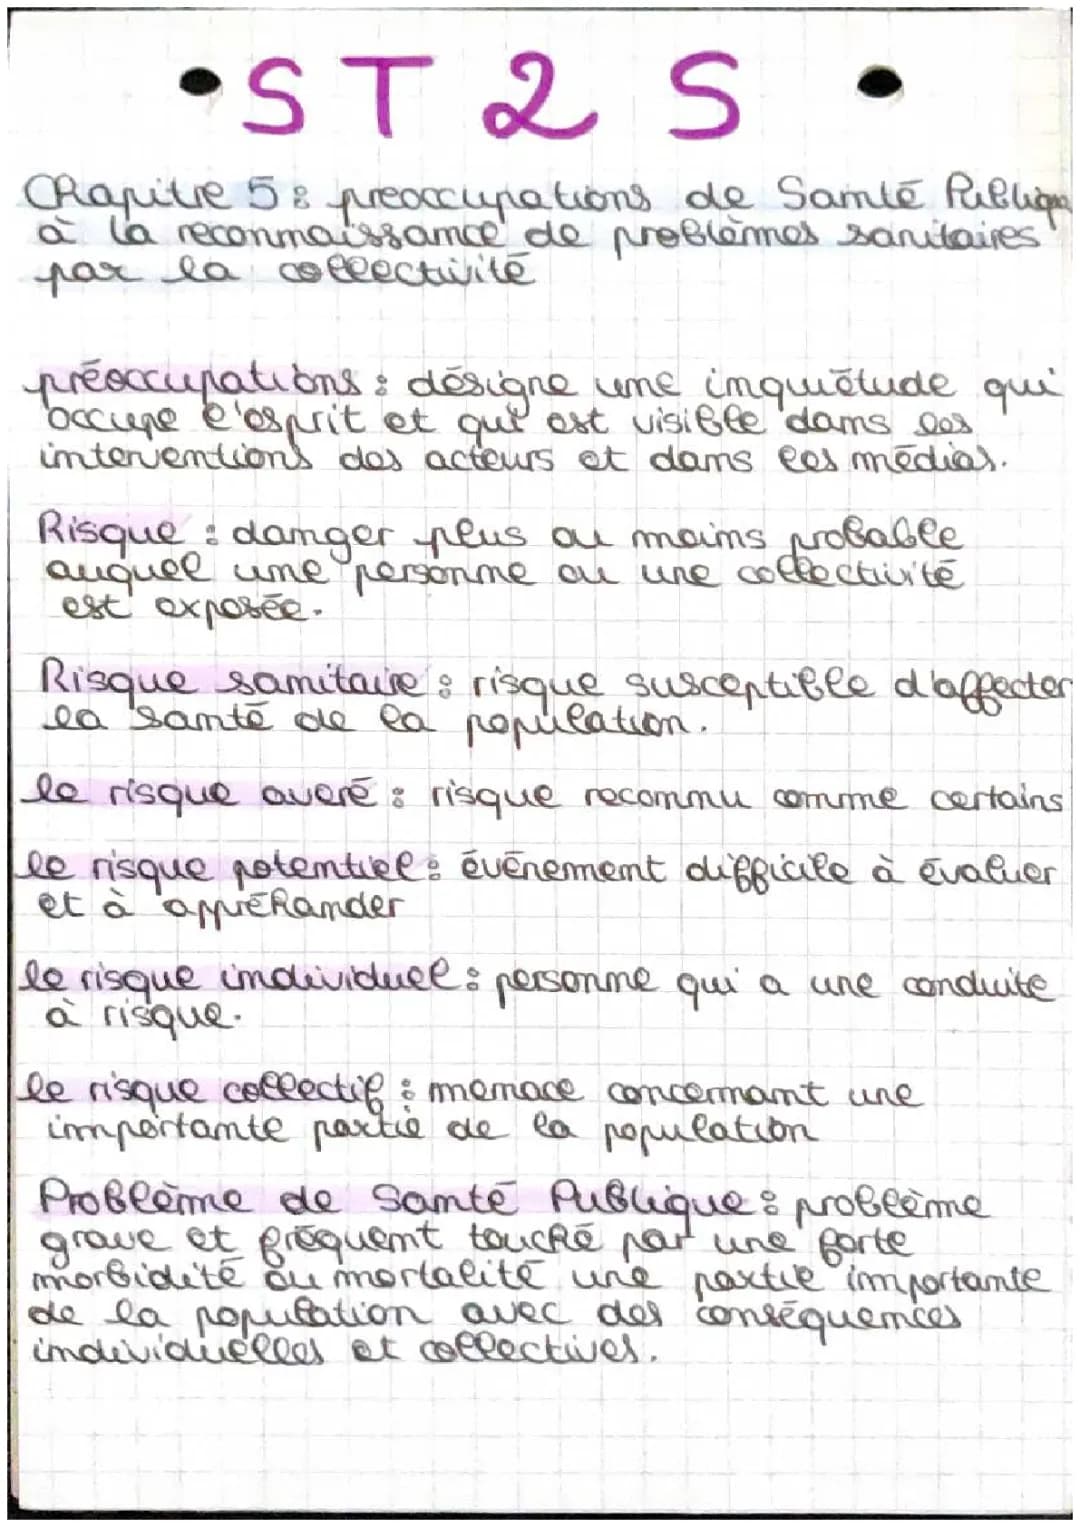 • ST2S •
Chapitre 5 : preoccupations de Santé Publique
à la reconnaissance de problèmes sanitaires
par la collectivité
préoccupations : désigne une inquiétude qui
occupe l'esprit et qui est visible dans les
interventions des acteurs et dans les médias.
Risque : danger plus ou moins probable
auquel une personne ou une collectivité
est exposée.
Risque sanitaire : risque susceptible d'affecter
la santé de la population.
le risque averé : risque reconnu comme certains
le risque potentiel : événement difficile à évaluer
et à appréhander
le risque individuel : personne qui a une conduite
à risque.
le risque collectif : menace concernant une
importante partie de la population
Problème de Santé Publique : problème
grave et fréquent touché par une forte
morbidité ou mortalité une partie importante
de la population avec des conséquences
individuelles et collectives.